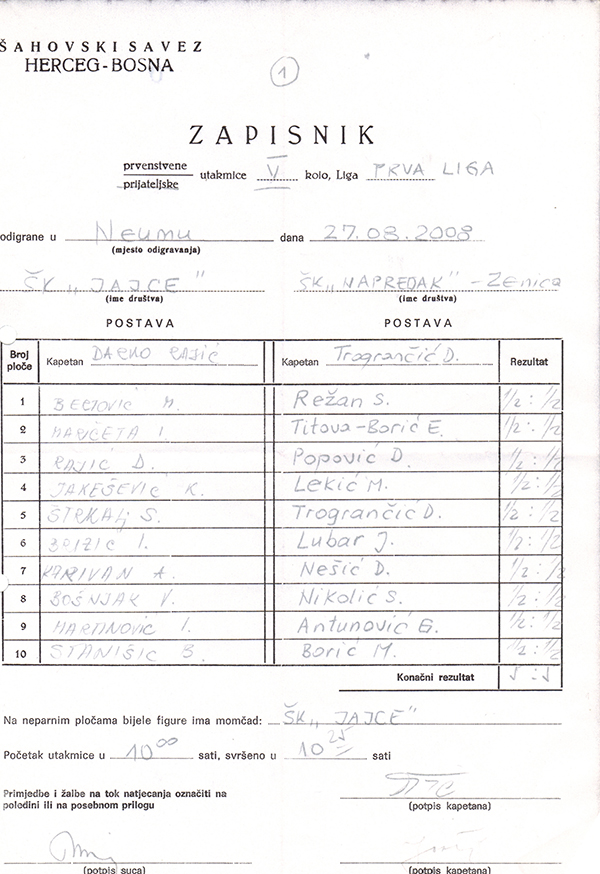 ŠAHOVSKI SAVEZ
HERCEG-BOSNA
1
ZAPISNIK
prvenstvene
prijateljske utakmice V kolo, Liga PRVA LIGA
odigrane u Neumu dana 27.08.2008
(mjesto odigravanja)
ŠK „JAJCE" ŠK „NAPREDAK" - Zenica
(ime društva) (ime društva)
POSTAVA POSTAVA
Broj ploče Kapetan DARKO RAJIĆ Kapetan Trogrančić D. Rezultat
1 M. Režan S. 1/2 : 1/2
2 MARČETA I. Titova-Borić E. 1/2 : 1/2
3 RAJIĆ D. Popović D. 1/2 : 1/2
4 JAKEŠEVIĆ K. Lekić M. 1/2 : 1/2
5 ŠTRKALJ S. Trogrančić D. 1/2 : 1/2
6 I. Lubar J. 1/2 : 1/2
7 KARIVAN A. Nešić D. 1/2 : 1/2
8 BOŠNJAK V. Nikolić S. 1/2 : 1/2
9 MARTINOVIĆ I. Antunović G. 1/2 : 1/2
10 STANIŠIĆ B. Borić M. 1/2 : 1/2
Konačni rezultat 5 : 5
Na neparnim pločama bijele figure ima momčad: ŠK „JAJCE"
Početak utakmice u 10 00 sati, svršeno u 10 25 sati
Primjedbe i žalbe na tok natjecanja označiti na
poleđini ili na posebnom prilogu
(potpis kapetana)
(potpis suca) (potpis kapetana)